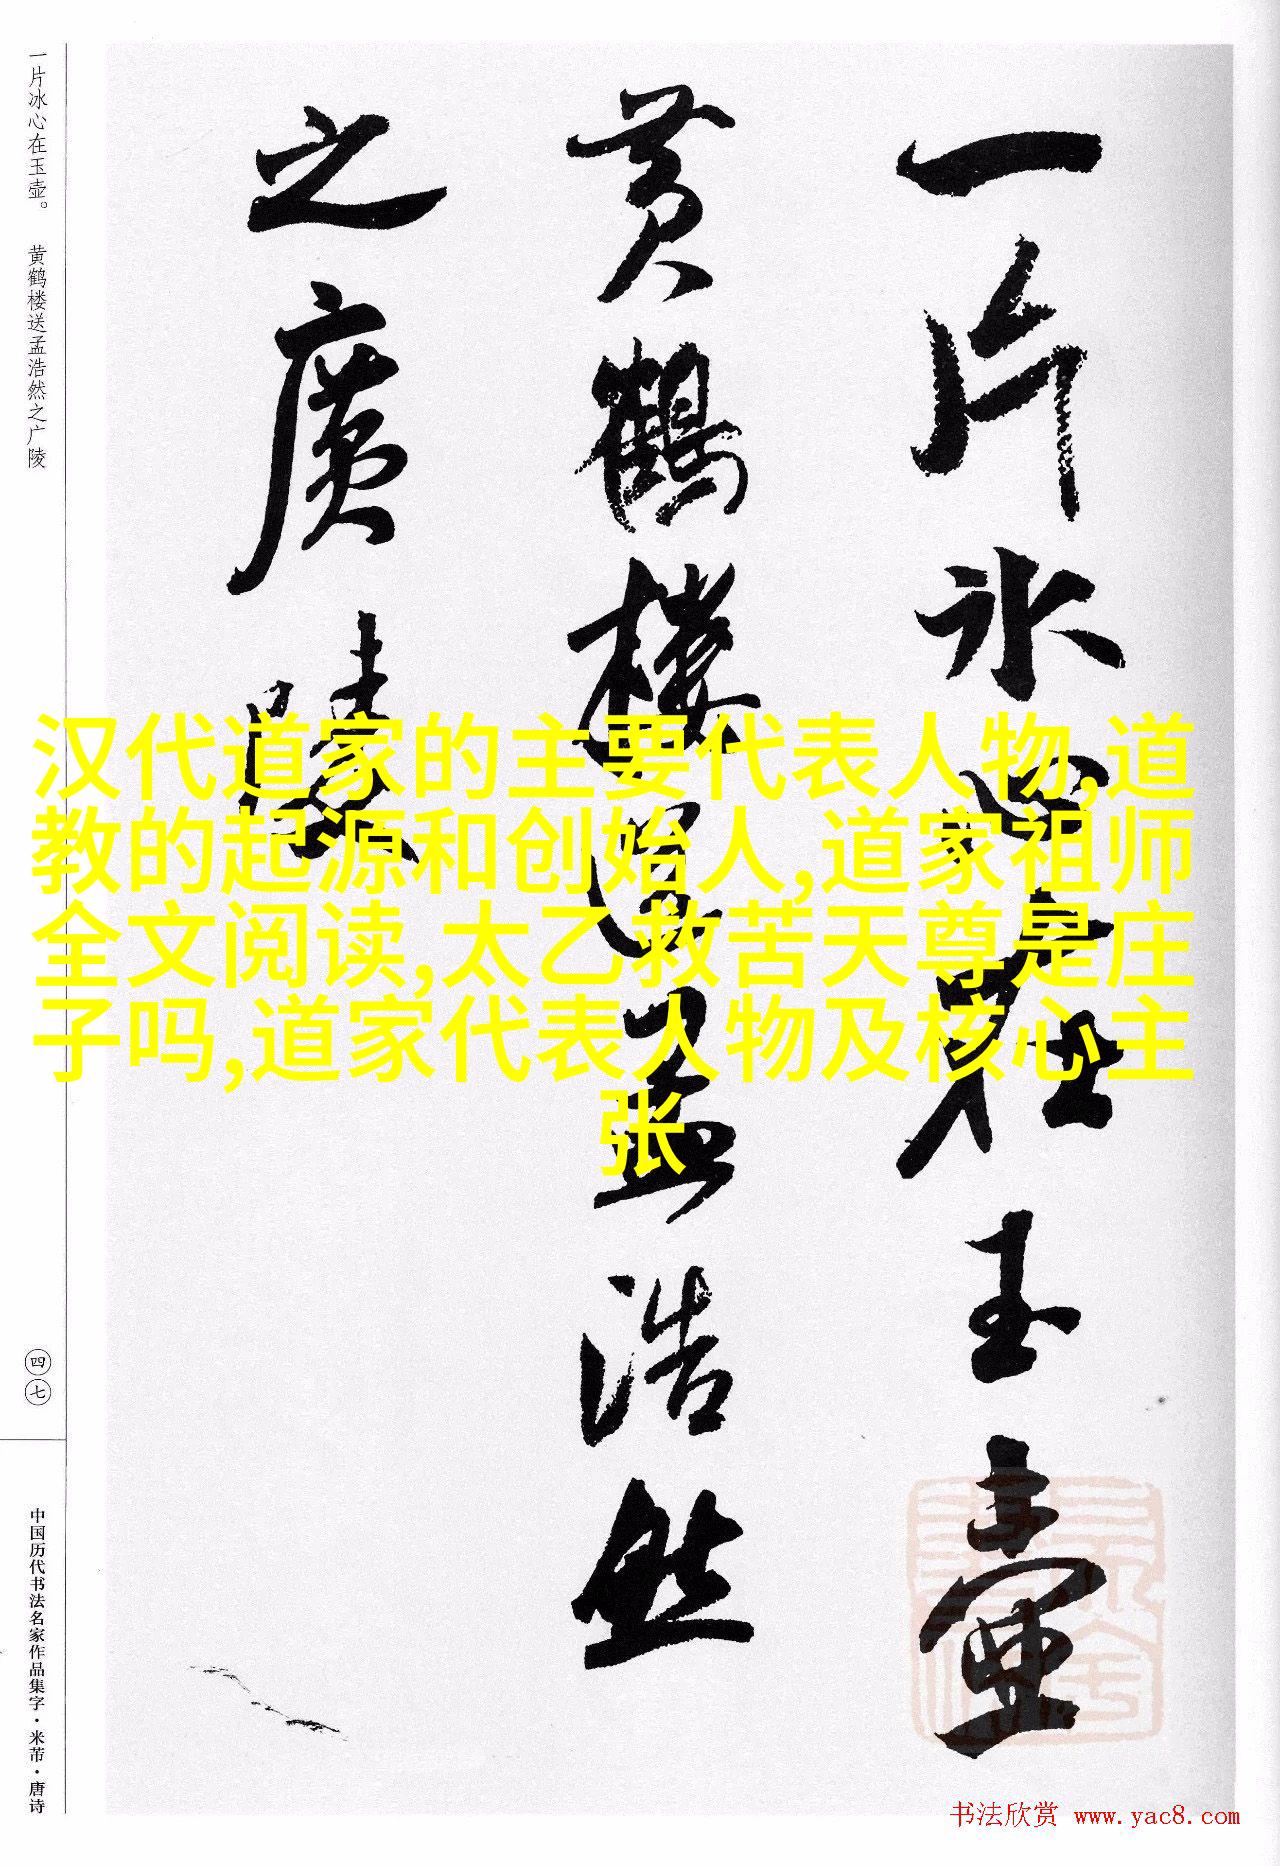 一片冰心在玉壶
黄鹤楼送孟浩然
之廣陵
汉代道家的主要代表人物,道
教的起源和创始人,道家祖师
全文阅读,太乙救苦天尊是庄
子吗,道家代表人物及核心主
张
一片冰心在玉壶。 黄鹤楼送孟浩然之广陵
四七
中国历代书法名家作品集字·米芾·唐诗
书法欣赏 www.yac8.com